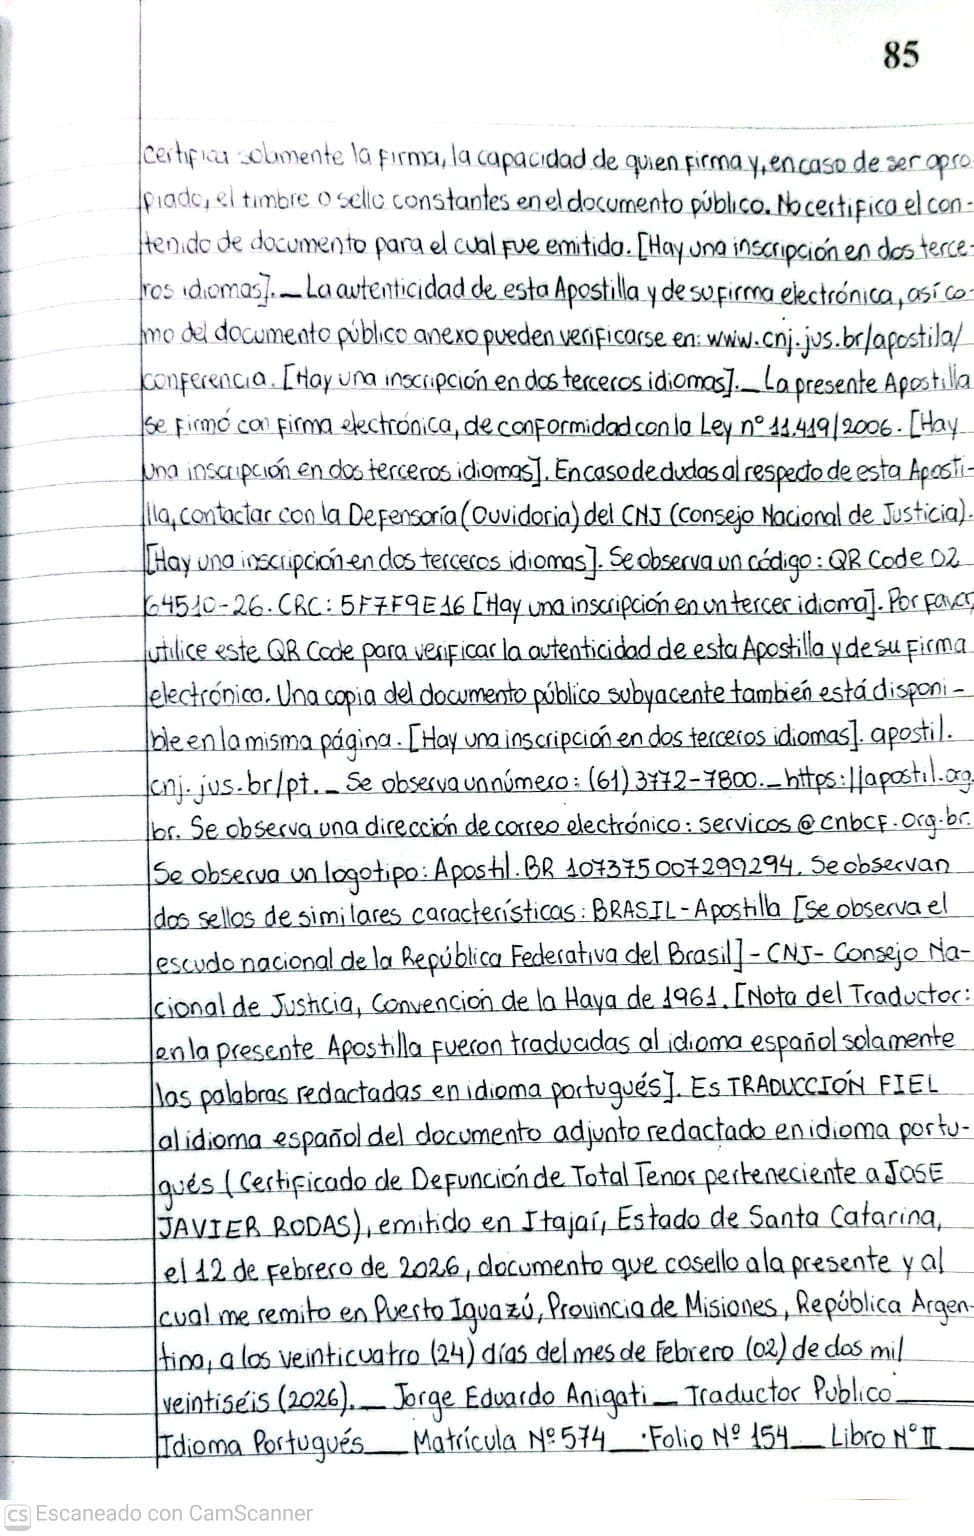 85
certifica solamente la firma, la capacidad de quien firma y, en caso de ser apro
piado, el timbre o sello constantes en el documento público. No certifica el con-
tenido de documento para el cual fue emitida. [Hay una inscripción en dos terce-
ros idiomas]._ La autenticidad de esta Apostilla y de su firma electrónica, así co-
mo del documento público anexo pueden verificarse en: www.cnj.jus.br/apostila/
conferencia. [Hay una inscripción en dos terceros idiomas]._ La presente Apostilla
se firmó con firma electrónica, de conformidad con la Ley nº 11.419/2006. [Hay
una inscripción en dos terceros idiomas]. En caso de dudas al respecto de esta Aposti-
lla, contactar con la Defensoría (Ouvidoria) del CNJ (Consejo Nacional de Justicia).
[Hay una inscripción en dos terceros idiomas]. Se observa un código: QR Code 02
64510-26. CRC: 5F7F9E16 [Hay una inscripción en un tercer idioma]. Por favor,
utilice este QR Code para verificar la autenticidad de esta Apostilla y de su firma
electrónica. Una copia del documento público subyacente también está disponi-
ble en la misma página. [Hay una inscripción en dos terceros idiomas]. apostil.
cnj.jus.br/pt._ Se observa un número: (61) 3772-7800._ https://apostil.org.
br. Se observa una dirección de correo electrónico: servicos@cnbcf.org.br.
Se observa un logotipo: Apostil.BR 107375007299294. Se observan
dos sellos de similares características: BRASIL-Apostilla [se observa el
escudo nacional de la República Federativa del Brasil] - CNJ- Consejo Na-
cional de Justicia, Convención de la Haya de 1961. [Nota del Traductor:
en la presente Apostilla fueron traducidas al idioma español solamente
las palabras redactadas en idioma portugués]. Es TRADUCCIÓN FIEL
al idioma español del documento adjunto redactado en idioma portu-
gués (Certificado de Defunción de Total Tenor perteneciente a JOSE
JAVIER RODAS), emitido en Itajaí, Estado de Santa Catarina,
el 12 de Febrero de 2026, documento que cosello a la presente y al
cual me remito en Puerto Iguazú, Provincia de Misiones, República Argen-
tina, a los veinticuatro (24) días del mes de Febrero (02) de dos mil
veintiséis (2026)._ Jorge Eduardo Anigati _ Traductor Publico
Idioma Portugués __ Matrícula Nº 574 _ . Folio Nº 154 _ Libro Nº II _
CS Escaneado con CamScanner